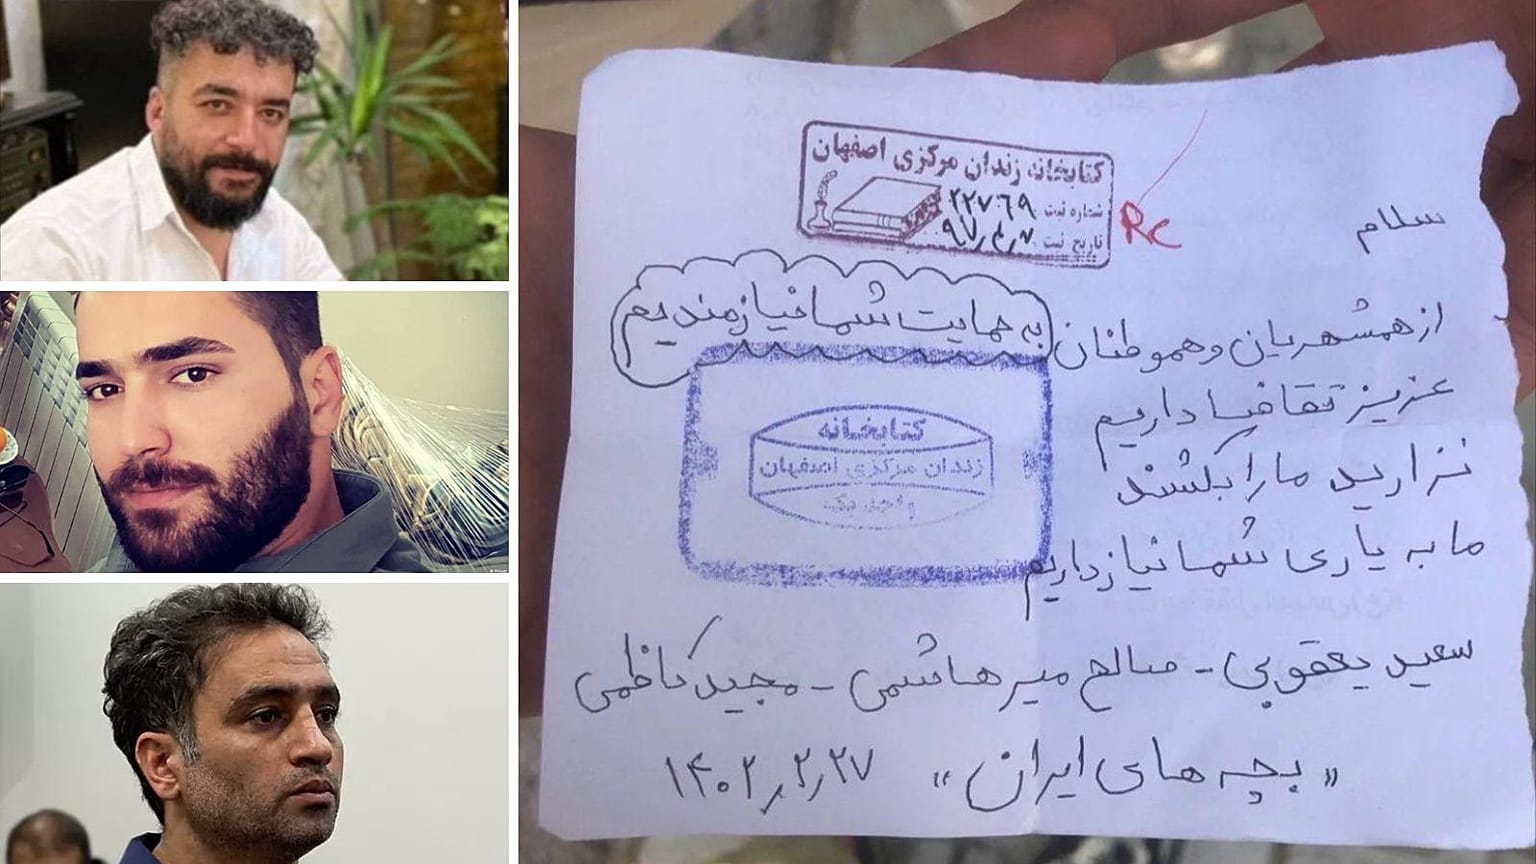 کتابخانه زندان مرکزی اصفهان
شماره ثبت ۲۲۷۶۹
تاریخ ثبت ۹۷٫۴٫۷
Rc
سلام
از همشهریان و هموطنان به حمایت شما نیازمندیم
عزیز تقاضا داریم
نزارید ما را بکشند
ما به یاری شما نیاز داریم
کتابخانه
زندان مرکزی اصفهان
واحد یک
سعید یعقوبی - صالح میرهاشمی - مجید کاظمی
"بچه های ایران" ۱۴۰۲٫۲٫۲۷